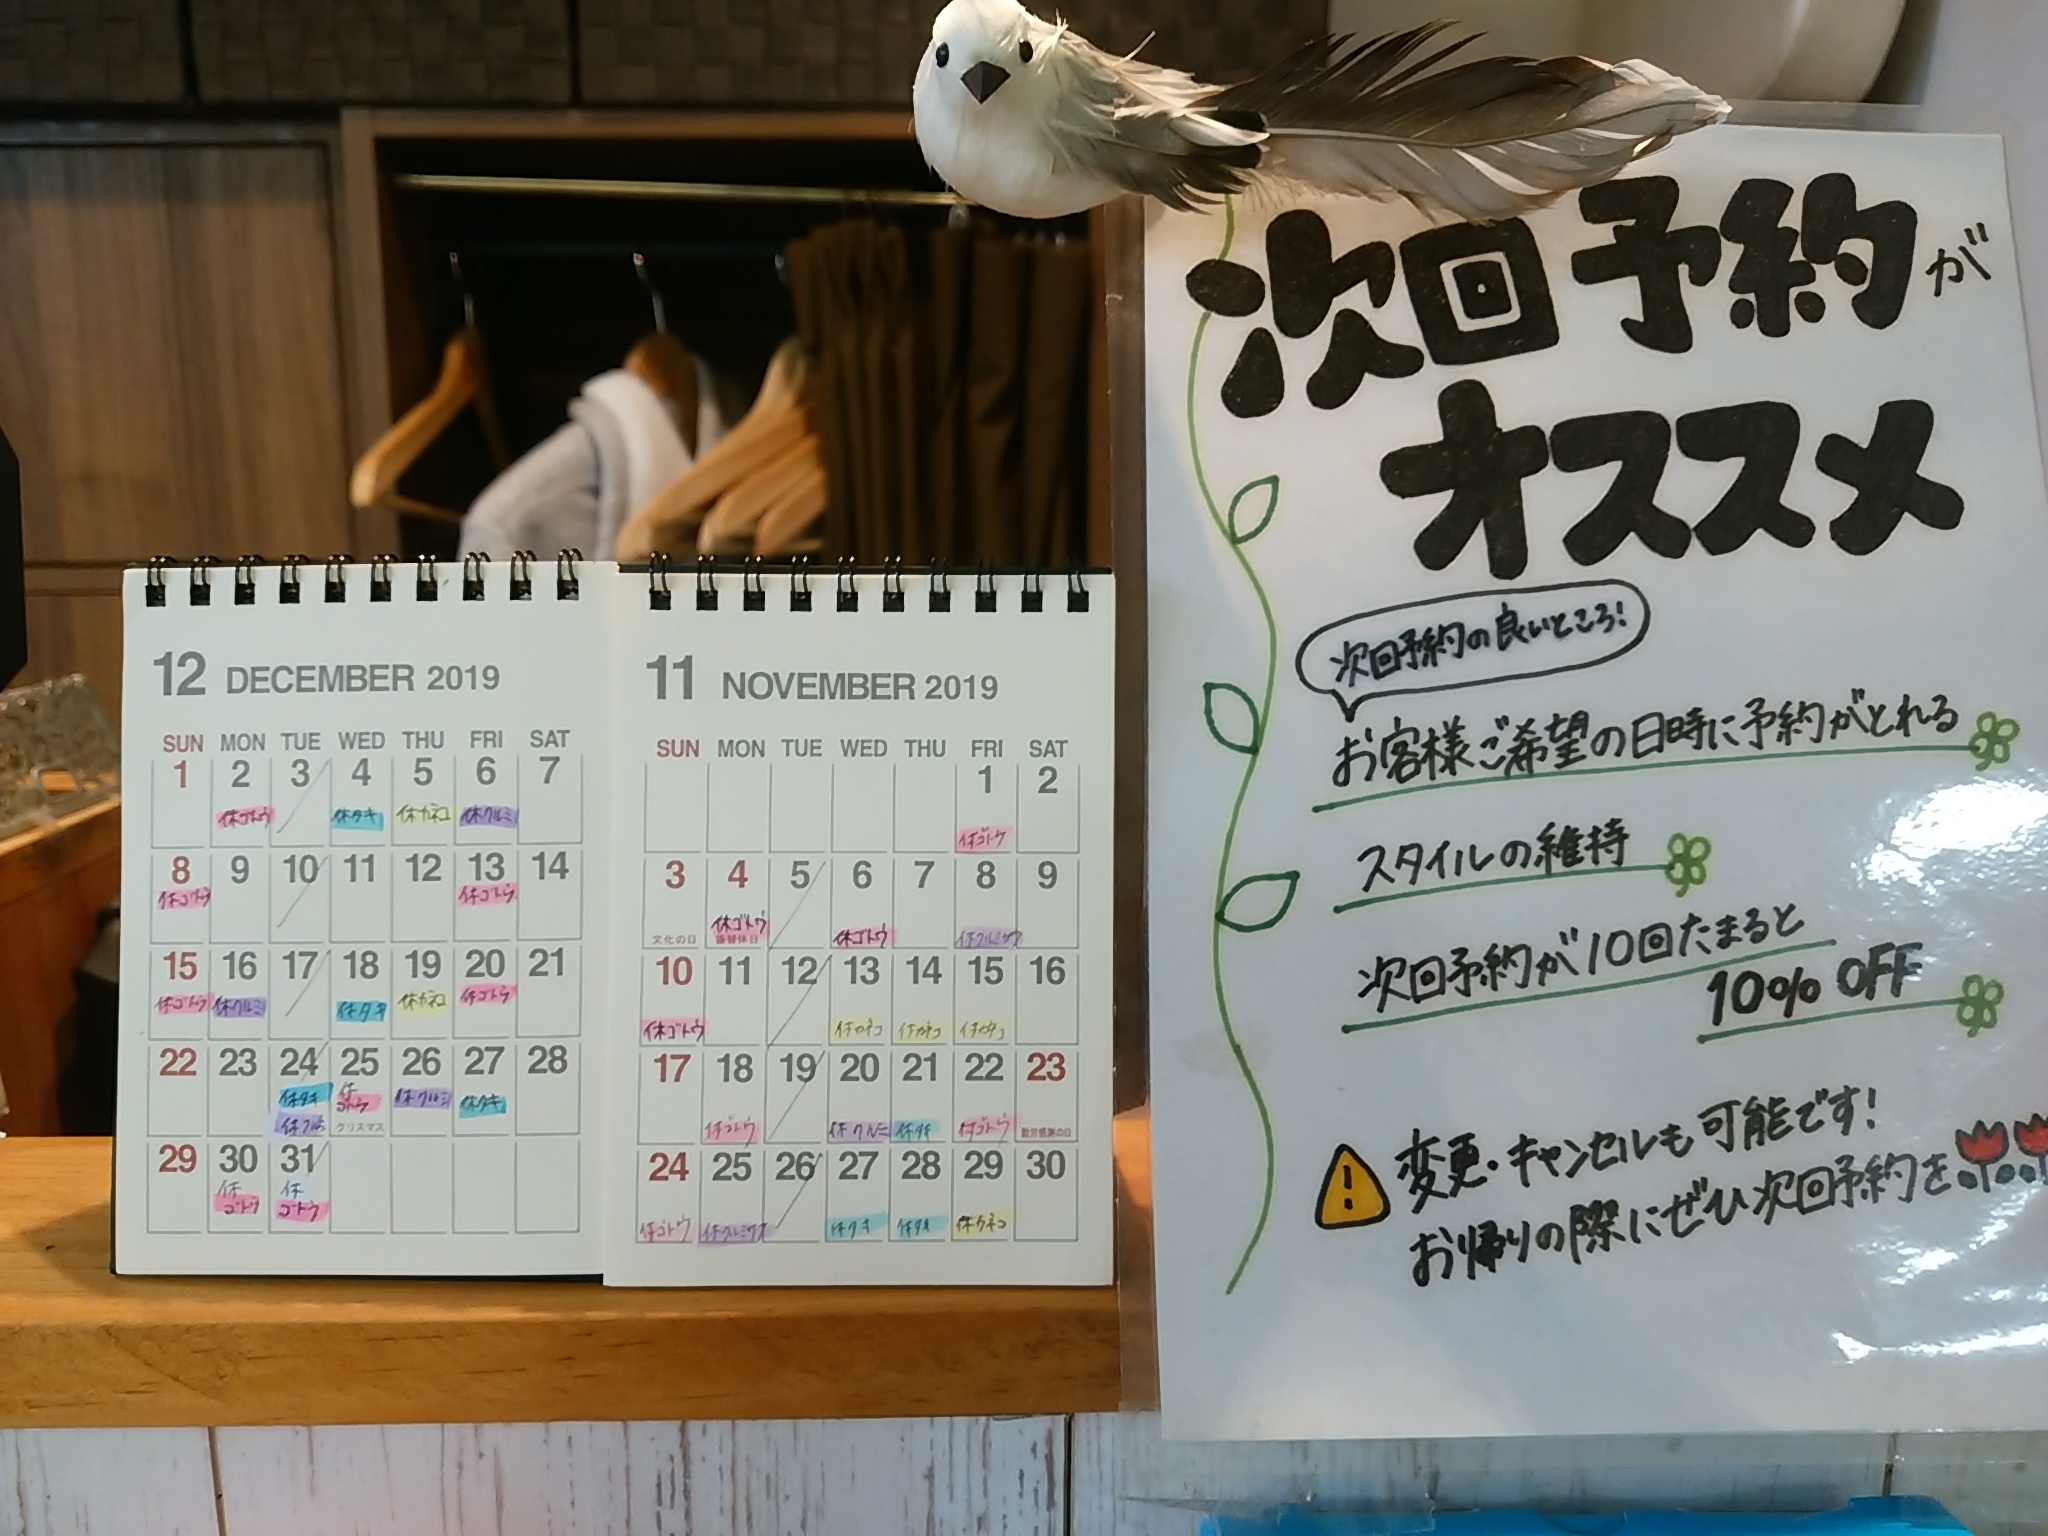 12 DECEMBER 2019
SUN MON TUE WED THU FRI SAT
1 2 3 4 5 6 7
休ゴトウ 休タキ 休カネコ 休クルミ
8 9 10 11 12 13 14
休ゴトウ 休ゴトウ
15 16 17 18 19 20 21
休ゴトウ 休クルミ 休タキ 休カネコ 休ゴトウ
22 23 24 25 26 27 28
休タキ 休ゴトウ 休クルミ 休タキ
クリスマス
29 30 31
休ゴトウ 休ゴトウ
11 NOVEMBER 2019
SUN MON TUE WED THU FRI SAT
1 2
休ゴトウ
3 4 5 6 7 8 9
休ゴトウ 休ゴトウ
文化の日 振替休日
10 11 12 13 14 15 16
休ゴトウ 休カネコ 休カネコ 休カネコ
17 18 19 20 21 22 23
休ゴトウ 休クルミ 休タキ 休ゴトウ 勤労感謝の日
24 25 26 27 28 29 30
休ゴトウ 休タキ 休タキ 休カネコ
次回予約が
オススメ
次回予約の良いところ!
お客様ご希望の日時に予約がとれる
スタイルの維持
次回予約が10回たまると
10% OFF
変更・キャンセルも可能です!
お帰りの際にぜひ次回予約を